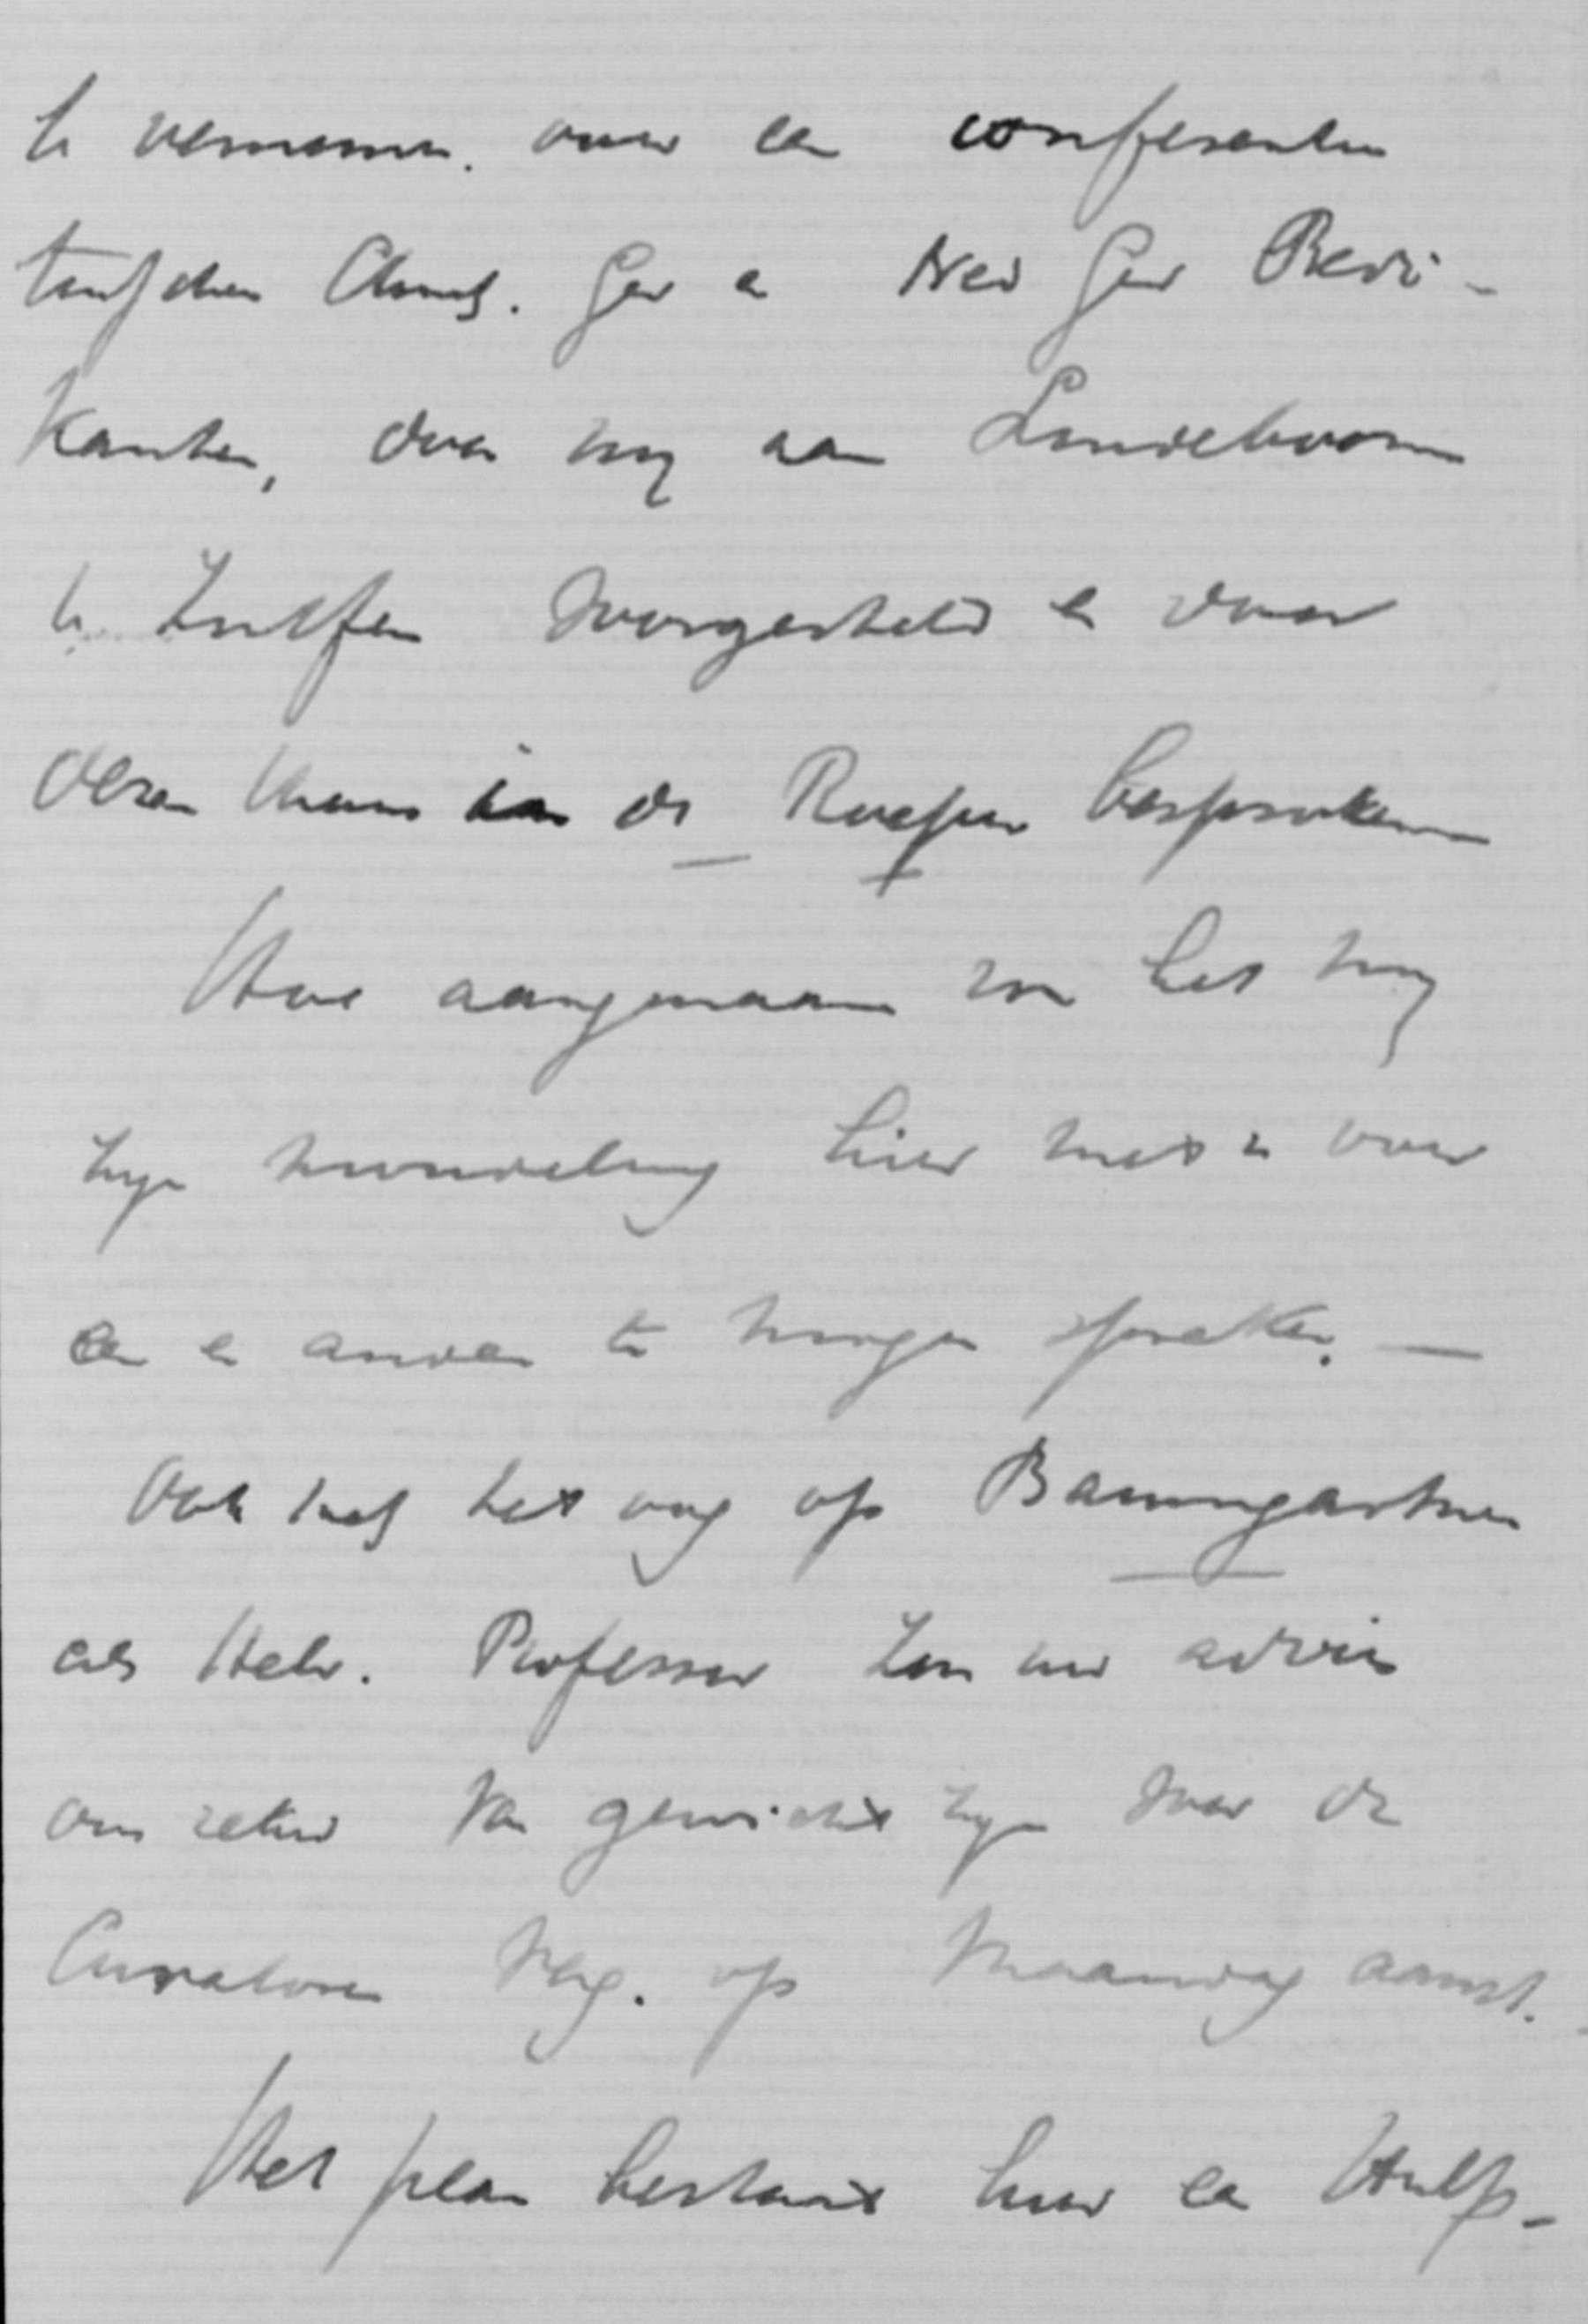 te vernemen. over een conferentie
tusschen Chrs. Ger en Ned Ger Predi-
kanten, door my aan Lindeboom
te Zutfen voorgesteld en door
dezen thans in de Roeper besproken
Hoe aangenaam zou het my
zyn mondeling hier met u over
een en ander te mogen spreken. —
Ook met het oog op Baumgartner
als Hebr. Professor zou uw advies
ons zeker van gewicht zyn voor de
Curatoren Verg. op Maandag aanst.
Het plan bestaat hier een Hulp-